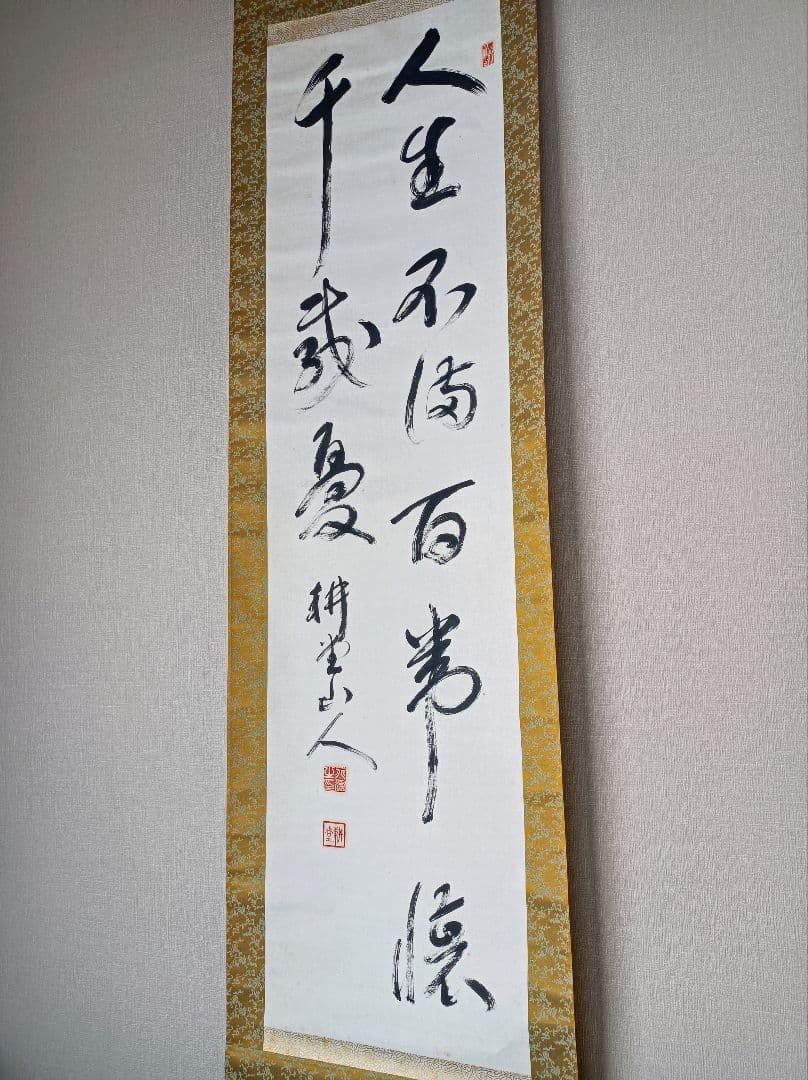 人生不満百常懐
千載憂 耕堂山人
耕堂